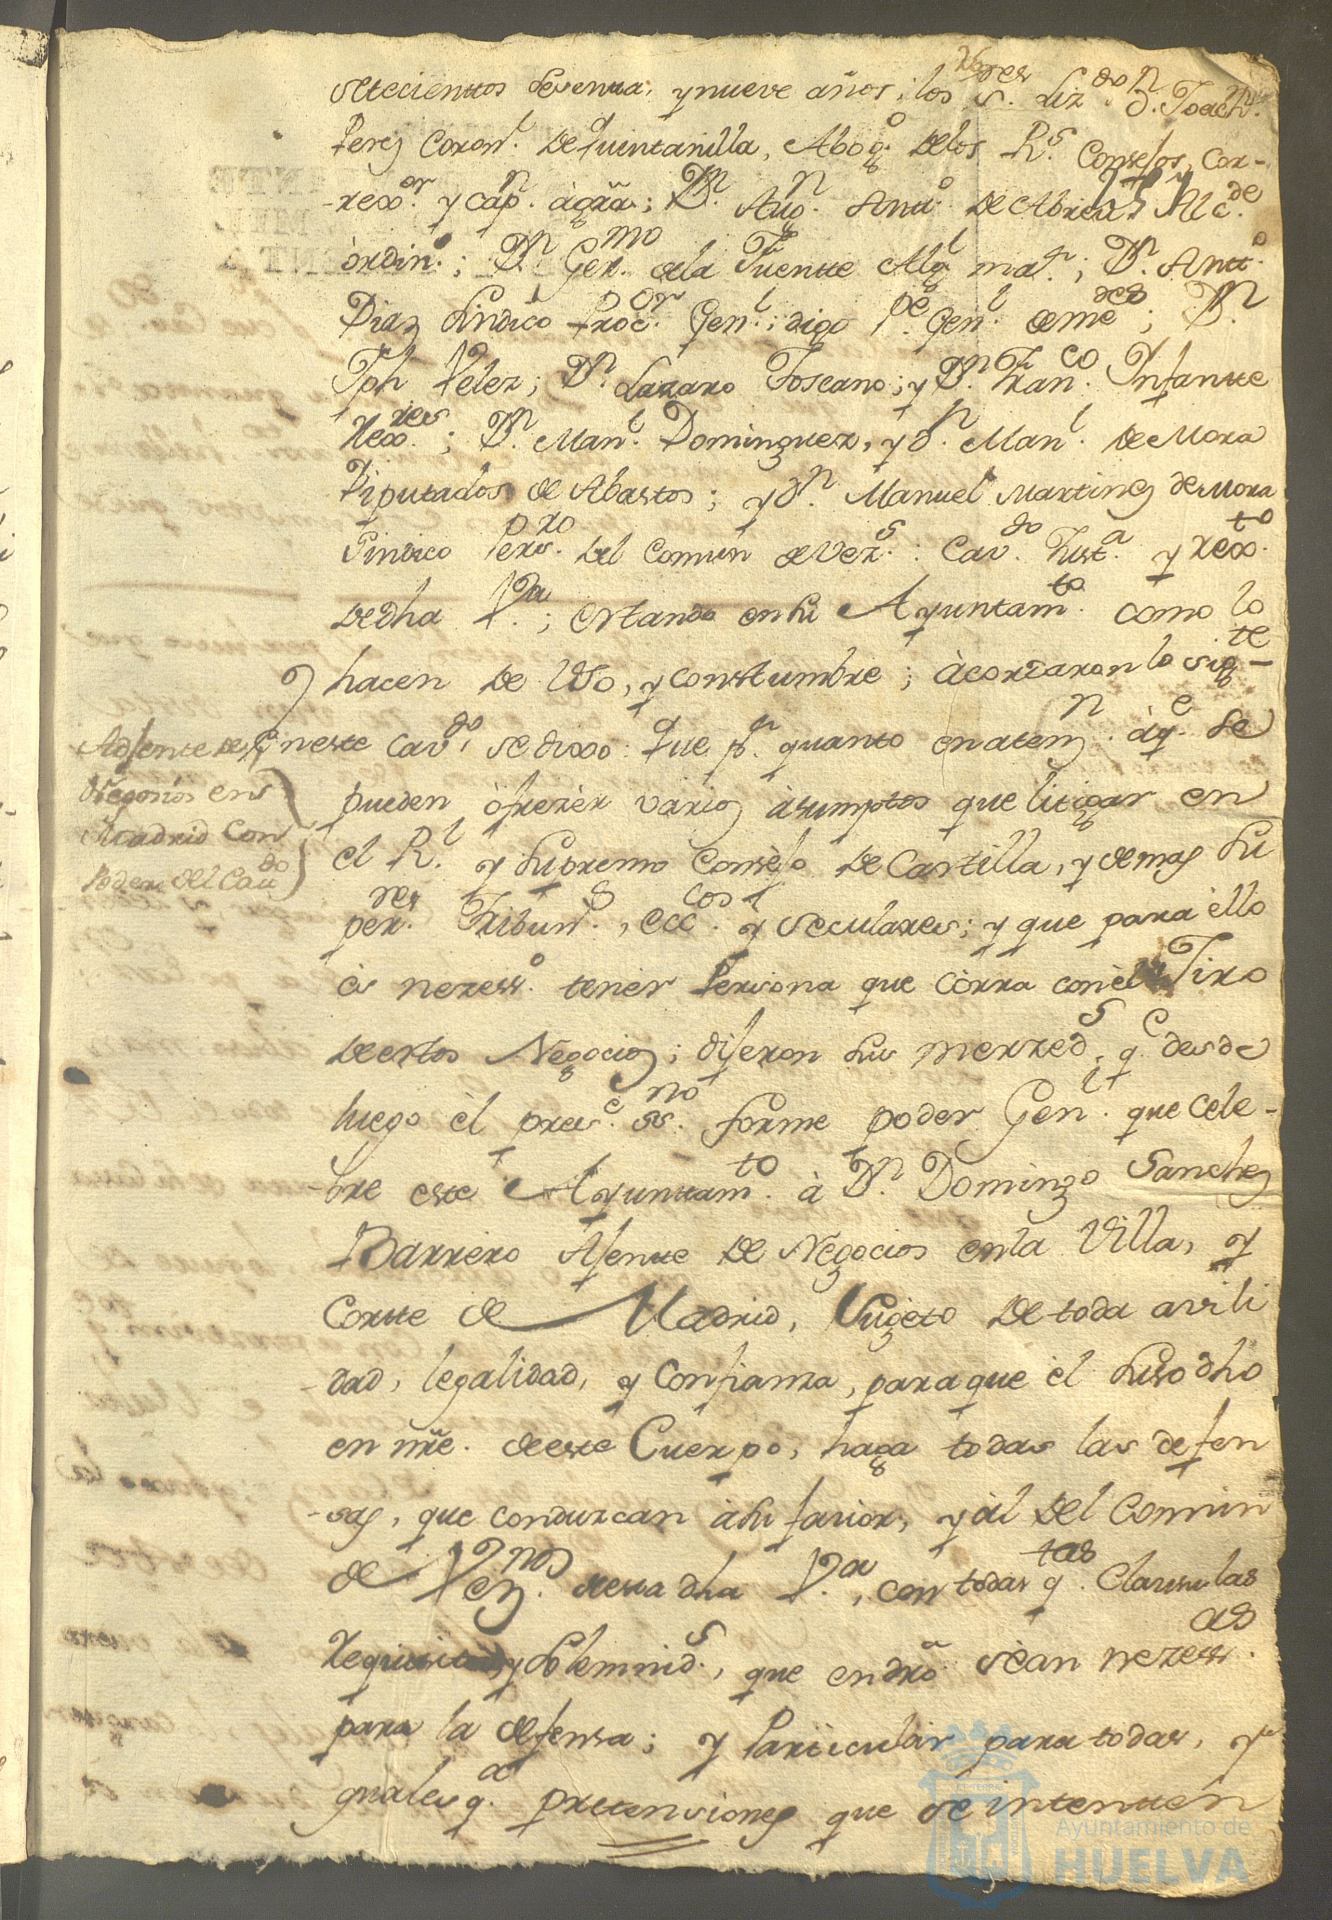 setecientos sesenta, y nueve años; los S.res Liz.do D.n Joach.n
Perez Coron.l De Quintanilla, Abog.o Delos R.s Consejos, Cor-
-rexor. y cap.n àgrã; D.n Aug.n Ant.o De Abreu Alc.de
òrdin.o; D.n Ger.mo dela Fuente Alg.l ma.r; D.n Ant.o
Diaz Sindico Proc.or Gen.l; digo P.e Gen.l de me.des; D.n
Jph Velez; D.n Lazaro Toscano; y D.n Fran.co Infante
Rexo.res; D.n Man.l Dominguez, y d.n Man.l De Mora
Diputados de Abastos; y d.n Manuel Martinez de Mora
Sindico Pers.ro Del Comun de Vez.s: Cav.do Just.a y rexo.to
De dha V.a; estando en su Ayuntam.to como lo
hacen De Uso, y constumbre; àcordaron lo sig.te-
Ajente de
Negocios en
Madrid con
Poder del Cav.do
En este Cav.do se dixo: Que p.r quanto en aten.n àq.e se
pueden òfrezèr varios àsumptos que litigar en
el R.l y Supremo Consejo De Castilla, y demas Su
per.res Tribun.s, ecc.cos y seculares; y que para èllo
ès nezess.o tenèr Persona que còrra con èl Jiro
De estos Negocios; dijeron sus merzed.s q.e desde
luego èl pres.e ss.no forme poder Gen.l que cele-
-bre este Ayuntam.to à D.n Domingo Sanchez
Barrero Ajente De Negocios en la Villa, y
Corte de Madrid, Sugeto De toda avili
-dad, legalidad, y Confianza, para que èl suso dho
en nre. de este Cuerpo, haga todas las defen
-sas, que conduzcan à su favior, y àl Del Comun
de Vez.nos desta dha V.a, con todas q.tas Clausulas
Requisitos, y Solemnid.s, que en dro sèan nezess.as
para la defensa; y Particular para todas, y
quales q.a pretensiones que se intenten
ET TERRÆ
Ayuntamiento de
HUELVA